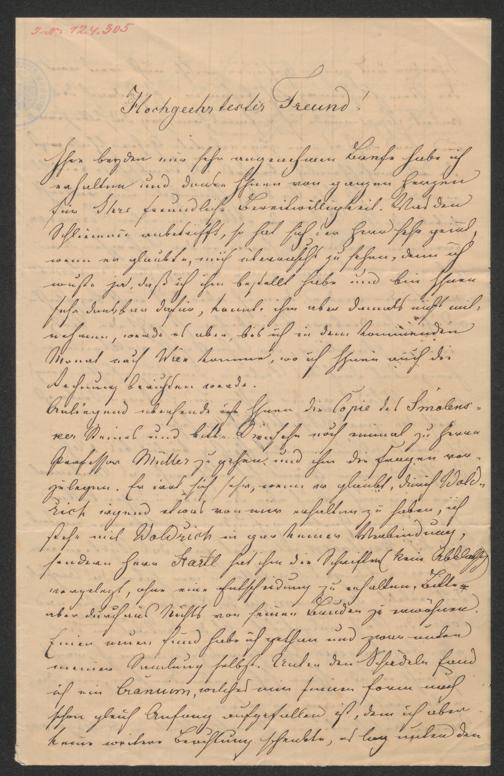 I.N. 124.305
Hochgeehrtester Freund!
Ihre beyden mir sehr angenehmen Briefe habe ich
erhalten und danke Ihnen von ganzen Herzen
für Ihre freundliche Bereitwilligkeit. Was den
Schliemann anbetrifft, so hat sich der Herr sehr geirrt,
wenn er glaubte, mich überrascht zu sehen, denn ich
wußte ja, daß ich ihn bestellt habe und bin Ihnen
sehr dankbar dafür, konnte ihn aber damals nicht mit-
nehmen, werde es aber, bis ich in dem kommenden
Monat nach Wien komme, wo ich Ihnen auch die
Rechnung berichten werde.
Anliegend übersende ich Ihnen die Copie des Smolens-
ker Steines und bitte Dieselbe noch einmal zu Herrn
Professor Müller zu gehen und ihm die Fragen vor-
zulegen. Er irrt sich sehr, wenn er glaubt, durch Wold-
rich irgend etwas von mir erhalten zu haben, ich
stehe mit Woldrich in gar keiner Verbindung,
sondern Herr Hartl hat ihm die Schriften
vorgelegt, ohne eine Entscheidung zu erhalten. Bitte
aber durchaus Nichts von seinen zu erwähnen.
Einen neuen Fund habe ich gethan und zwar unter
meiner Samlung selbst. Unter den Schädeln fand
ich ein Cranium, welches mir seiner Form nach
schon gleich Anfang aufgefallen ist, dem ich aber
keine weitere Beachtung schenkte, es lag unter den